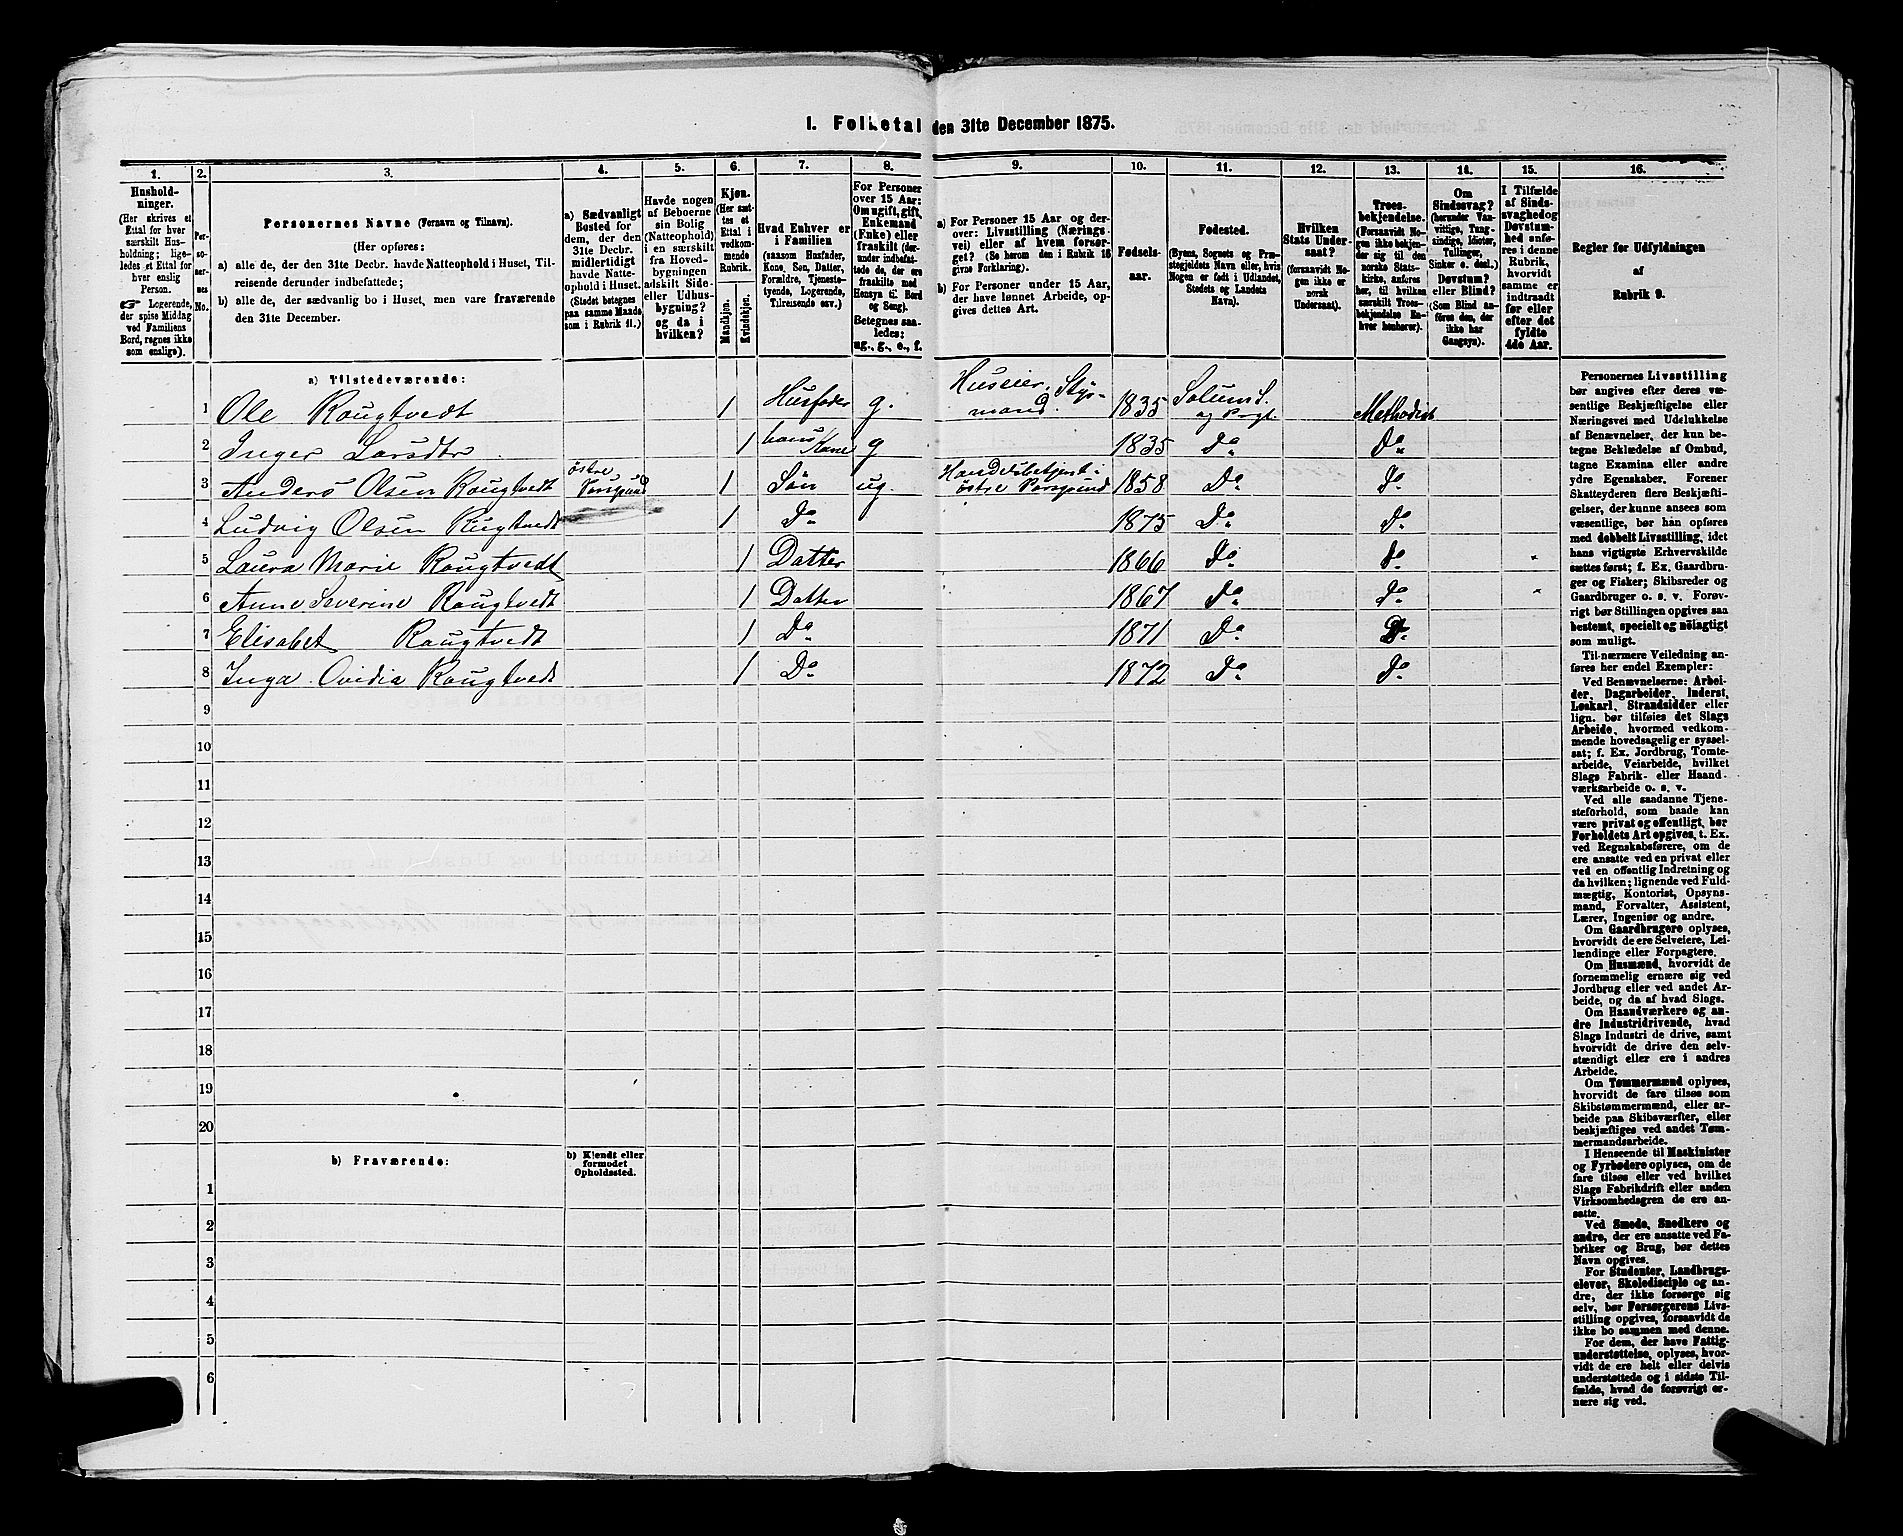 1. Folketal den 31te December 1875.
1.
2.
3.
4.
5.
6.
7.
8.
9.
10.
11.
12.
13.
14.
15.
16.
Hushold-
ninger.
(Her skrives et
Ettal for hver
særskilt Hus-
holdning; lige-
ledes et Ettal for
hver enslig
Person.
☛ Logerende,
der spise Middag
ved Familiens
Bord, regnes ikke
som enslige).
Per-
so-
ner-
nes
No.
Personernes Navne (Fornavn og Tilnavn).
(Her opføres:
a) alle de, der den 31te Decbr. havde Natteophold i Huset, Til-
reisende derunder indbefattede;
b) alle de, der sædvanlig bo i Huset, men vare fraværende
den 31te December.
a) Sædvanligt
Bosted for
dem, der den
31te Decbr.
midlertidigt
havde Natte-
ophold i Huset.
(Stedet betegnes
paa samme Maade
som i Rubrik 11.)
Havde nogen
af Beboerne
sin Bolig
(Natteophold)
i en særskilt
fra Hoved-
bygningen
adskilt Side-
eller Udhus-
bygning?
og da i
hvilken?
Kjøn.
(Her sæt-
tes et
Ettal i
vedkom-
mende
Rubrik.
Mandkjøn.
Kvindekjøn.
Hvad Enhver er
i Familien
(saasom Husfader,
Kone, Søn, Datter,
Forældre, Tjeneste-
tyende, Logerende,
Tilreisende osv.)
For Personer
over 15 Aar:
Om ugift, gift,
Enkemand
(Enke) eller
fraskilt (der-
under indbefat-
tede de, der ere
fraskilte med
Hensyn til Bord
og Seng).
Betegnes saa-
ledes:
ug., g., e., f.
a) For Personer 15 Aar og der-
over: Livsstilling (Nærings-
vei) eller af hvem forsør-
get? (Se herom den i Rubrik 16
givne Forklaring).
b) For Personer under 15 Aar,
der have lønnet Arbeide, op-
gives dettes Art.
Fødsels-
aar.
Fødested.
(Byens, Sognets og Præ-
stegjeldets Navn eller, hvis
Nogen er født i Udlandet,
Stedets og Landets
Navn).
Hvilken
Stats Under-
saat?
(forsaavidt No-
gen ikke er
norsk
Undersaat).
Troes-
bekjendelse.
(Forsaavidt No-
gen ikke bekjen-
der sig til den
norske Stats-
kirke, anføres
her, til hvilken
særskilt Troes-
bekjendelse En-
hver henhører).
Om
Sindssvag?
(herunder Van-
vittige, Tung-
sindige, Idioter,
Tullinger,
Sinker o. desl.)
Døvstum?
eller Blind?
(Som Blind an-
føres den, der
ikke har
Gangsyn).
I Tilfælde
af Sinds-
svaghed og
Døvstum-
hed anfø-
res i denne
Rubrik,
hvorvidt
samme er
indtraadt
før eller
efter det
fyldte
4de Aar.
Regler for Udfyldningen
af
Rubrik 9.
a) Tilstedeværende:
1 Ole Rougtvedt 1 Husfader g. Huseier, Styr-
mand. 1835 Solum S.
og Prgt. Methodist
2 Inger Larsdtr 1 hans Kone g 1835 Do Do
3 Anders Olsen Rougtvedt østre Porsgrund 1 Søn ug. Handelsbetjent i
østre Porsgrund 1858 Do Do
4 Ludvig Olsen Rugtvedt 1 Do 1875 Do Do
5 Laura Marie Rougtvedt 1 Datter 1866 Do Do
6 Anne Severine Rougtvedt 1 Datter 1867 Do Do
7 Elisabet Rougtvedt 1 Do 1871 Do Do
8 Inga Ovidia Rougtvedt 1 Do 1872 Do Do
9
10
11
12
13
14
15
16
17
18
19
20
b) Fraværende:
b) Kjendt eller
formodet
Opholdssted.
1
2
3
4
5
6
Personernes Livsstilling
bør angives efter deres væ-
sentlige Beskjæftigelse eller
Næringsvei med Udelukkelse
af Benævnelser, der kun be-
tegne Beklædelse af Ombud,
tagne Examina eller andre
ydre Egenskaber. Forener
Skatteyderen flere Beskjæfti-
gelser, der kunne ansees som
væsentlige, bør han opføres
med dobbelt Livsstilling, idet
hans vigtigste Erhvervskilde
sættes først; f. Ex. Gaardbru-
ger og Fisker; Skibsreder og
Gaardbruger o. s. v. Forøv-
rigt bør Stillingen opgives saa
bestemt, specielt og nöiagtigt
som muligt.
Til nærmere Veiledning an-
føres her endel Exempler:
Ved Benævnelserne: Arbei-
der, Dagarbeider, Inderst,
Løskarl, Strandsidder eller
lign. bør tilføies det Slags
Arbeide, hvormed vedkom-
mende hovedsagelig er syssel-
sat; f. Ex. Jordbrug, Tomte-
arbeide, Veiarbeide, hvilket
Slags Fabrik- eller Haand-
værksarbeide o. s. v.
Ved alle saadanne Tjene-
steforhold, som baade kan
være privat og offentligt, bør
Forholdets Art opgives, t. Ex.
ved Regnskabsførere, om de
ere ansatte ved en privat eller
ved en offentlig Indretning og
da hvilken; lignende ved Fuld-
mægtig, Kontorist, Opsyns-
mand, Forvalter, Assistent,
Lærer, Ingeniør og andre.
Om Gaardbrugere oplyses,
hvorvidt de ere Selveiere, Lei-
lændinge eller Forpagtere.
Om Husmænd, hvorvidt de
fornemmelig ernære sig ved
Jordbrug eller ved andet Ar-
beide, og da af hvad Slags.
Om Haandværkere og an-
dre Industridrivende, hvad
Slags Industri de drive, samt
hvorvidt de drive den selv-
stændigt eller ere i andres
Arbeide.
Om Tømmermænd oplyses,
hvorvidt de fare tilsøs som
Skibstømmermænd, eller ar-
beide paa Skibsværfter, eller
beskjæftiges ved andet Tøm-
mermandsarbeide.
I Henseende til Maskinister
og Fyrbødere oplyses, om de
fare tilsøs eller ved hvilket
Slags Fabrikdrift eller anden
Virksomhedsgren de ere an-
satte.
Ved Smede, Snedkere og
andre, der ere ansatte ved Fa-
briker og Brug, bør dettes
Navn opgives.
For Studenter, Landbrugs-
elever, Skoledisciple og an-
dre, der ikke forsørge sig
selv, bør Forsørgerens Livs-
stilling opgives, forsaavidt de
ikke bo sammen med denne.
For dem, der have Fattig-
understøttelse, oplyses, hvor-
vidt de ere helt eller delvis
understøttede og i sidste Til-
fælde, hvad de forøvrigt er-
nære sig ved.